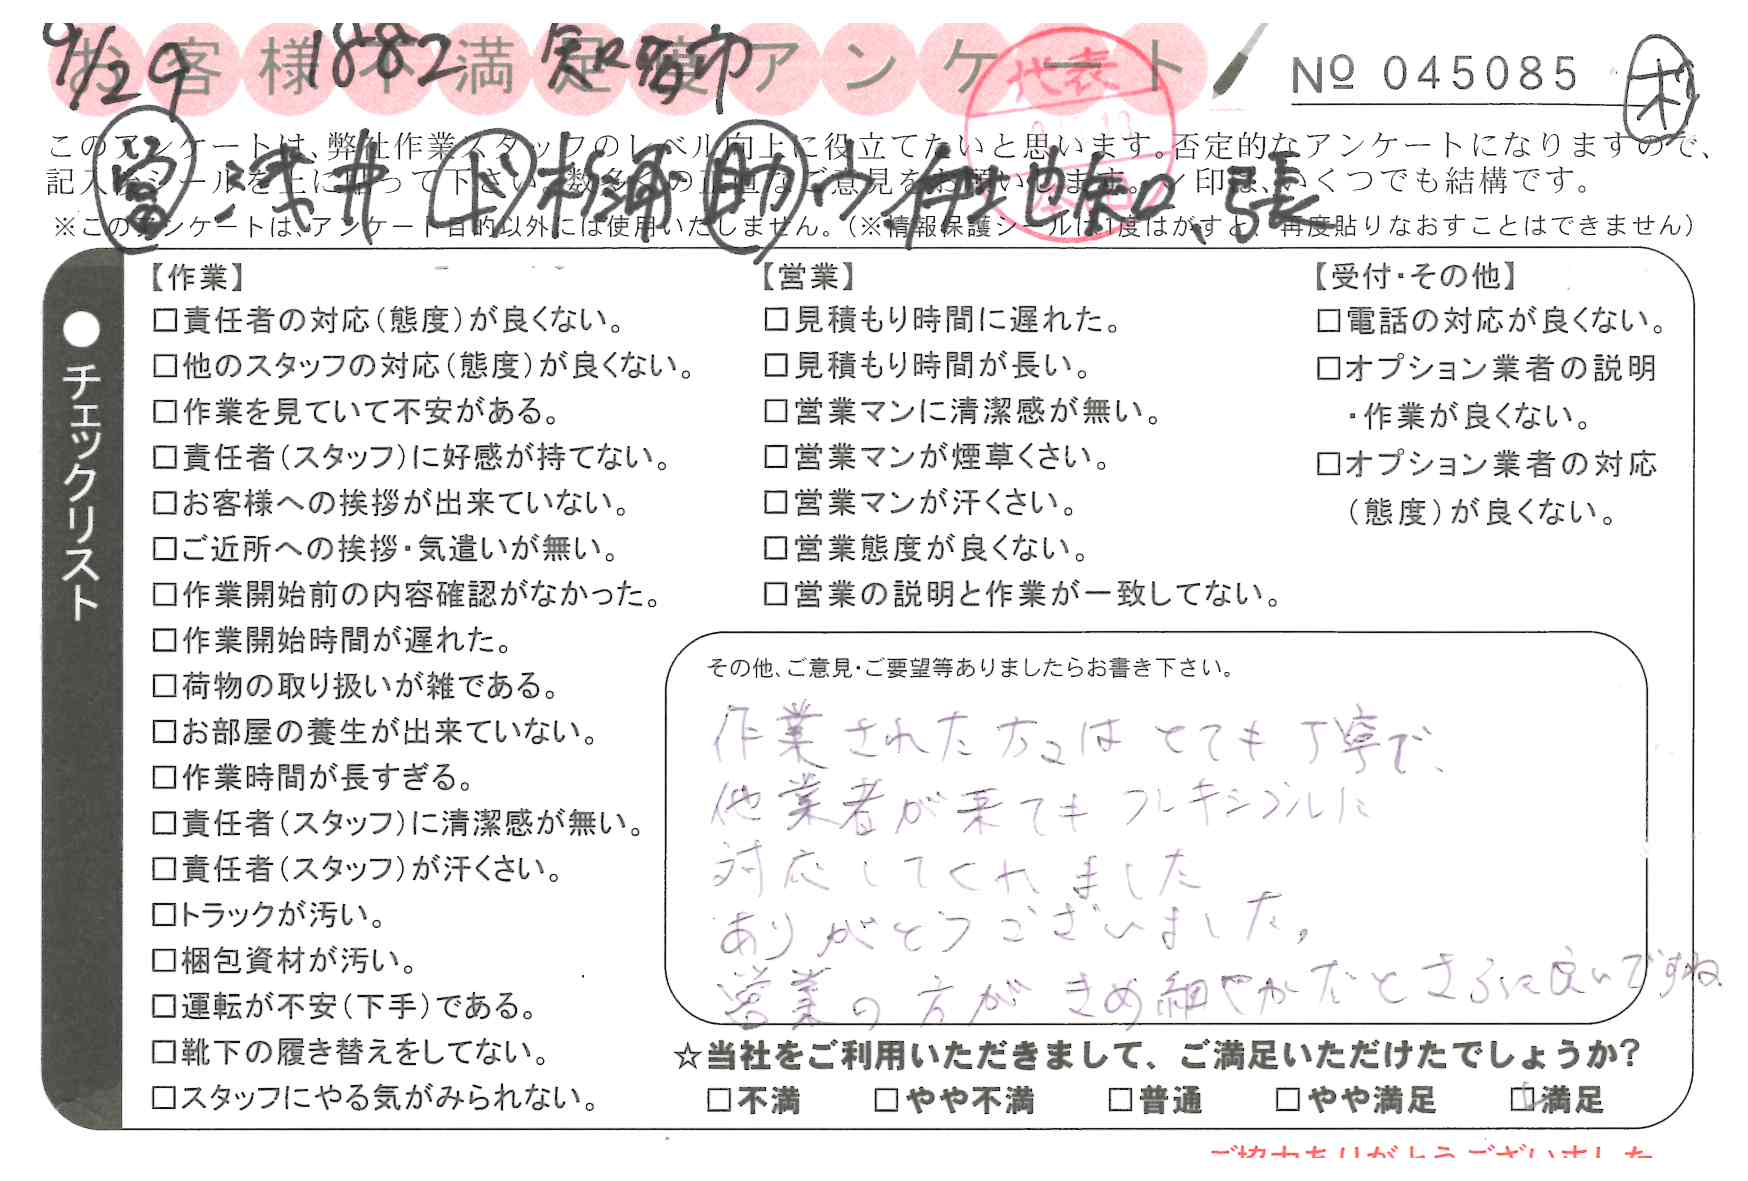 お客様不満足度アンケート
9/29 1882 知多市
№ 045085
このアンケートは、弊社作業スタッフのレベル向上に役立てたいと思います。否定的なアンケートになりますので、
記入後シールを上に貼って下さい。数多くの正直なご意見をお願いします。✓印は、いくつでも結構です。
営 浅井 ド 杉浦 助 伊地知、張
代表
※このアンケートは、アンケート目的以外には使用いたしません。（※情報保護シールは1度はがすと、再度貼りなおすことはできません）
●チェックリスト
【作業】
□責任者の対応（態度）が良くない。
□他のスタッフの対応（態度）が良くない。
□作業を見ていて不安がある。
□責任者（スタッフ）に好感が持てない。
□お客様への挨拶が出来ていない。
□ご近所への挨拶・気遣いが無い。
□作業開始前の内容確認がなかった。
□作業開始時間が遅れた。
□荷物の取り扱いが雑である。
□お部屋の養生が出来ていない。
□作業時間が長すぎる。
□責任者（スタッフ）に清潔感が無い。
□責任者（スタッフ）が汗くさい。
□トラックが汚い。
□梱包資材が汚い。
□運転が不安（下手）である。
□靴下の履き替えをしてない。
□スタッフにやる気がみられない。
【営業】
□見積もり時間に遅れた。
□見積もり時間が長い。
□営業マンに清潔感が無い。
□営業マンが煙草くさい。
□営業マンが汗くさい。
□営業態度が良くない。
□営業の説明と作業が一致してない。
【受付・その他】
□電話の対応が良くない。
□オプション業者の説明
・作業が良くない。
□オプション業者の対応
（態度）が良くない。
その他、ご意見・ご要望等ありましたらお書き下さい。
作業された方々はとても丁寧で、
他業者が来てもフレキシブルに
対応してくれました
ありがとうございました。
営業の方がきめ細やかだとさらに良いですね
☆当社をご利用いただきまして、ご満足いただけたでしょうか？
□不満 □やや不満 □普通 □やや満足 ☑満足
ご協力ありがとうございました